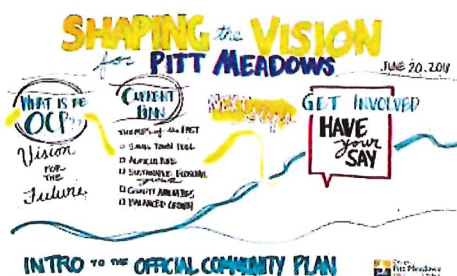 SHAPING the VISION
for PITT MEADOWS
JUNE 20, 2018
WHAT IS THE
OCP??
Vision
FOR
THE
Future
CURRENT
PLAN
THEMES of the PAST
SMALL TOWN FEEL
AGRICULTURE
SUSTAINABLE ECONOMIC
GROWTH
QUALITY AMENITIES
BALANCED GROWTH
NEXT
Steps
GET INVOLVED
HAVE
your
SAY
INTRO TO THE OFFICIAL COMMUNITY PLAN
Pitt Meadows